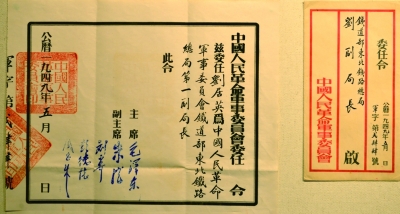 中國人民革命軍事委員會委任 令
茲委任劉居英爲中國人民革命
軍事委員會鐵道部東北鐵路
總局第一副局長
此令
主席 毛澤東
副主席 朱德
劉少奇
彭德懷
公曆一九四九年五月 日
軍字第
委任令
鐵道部東北鐵路總局
劉副局長 啟
公曆一九四九年五月 日
軍字第
中國人民革命軍事委員會